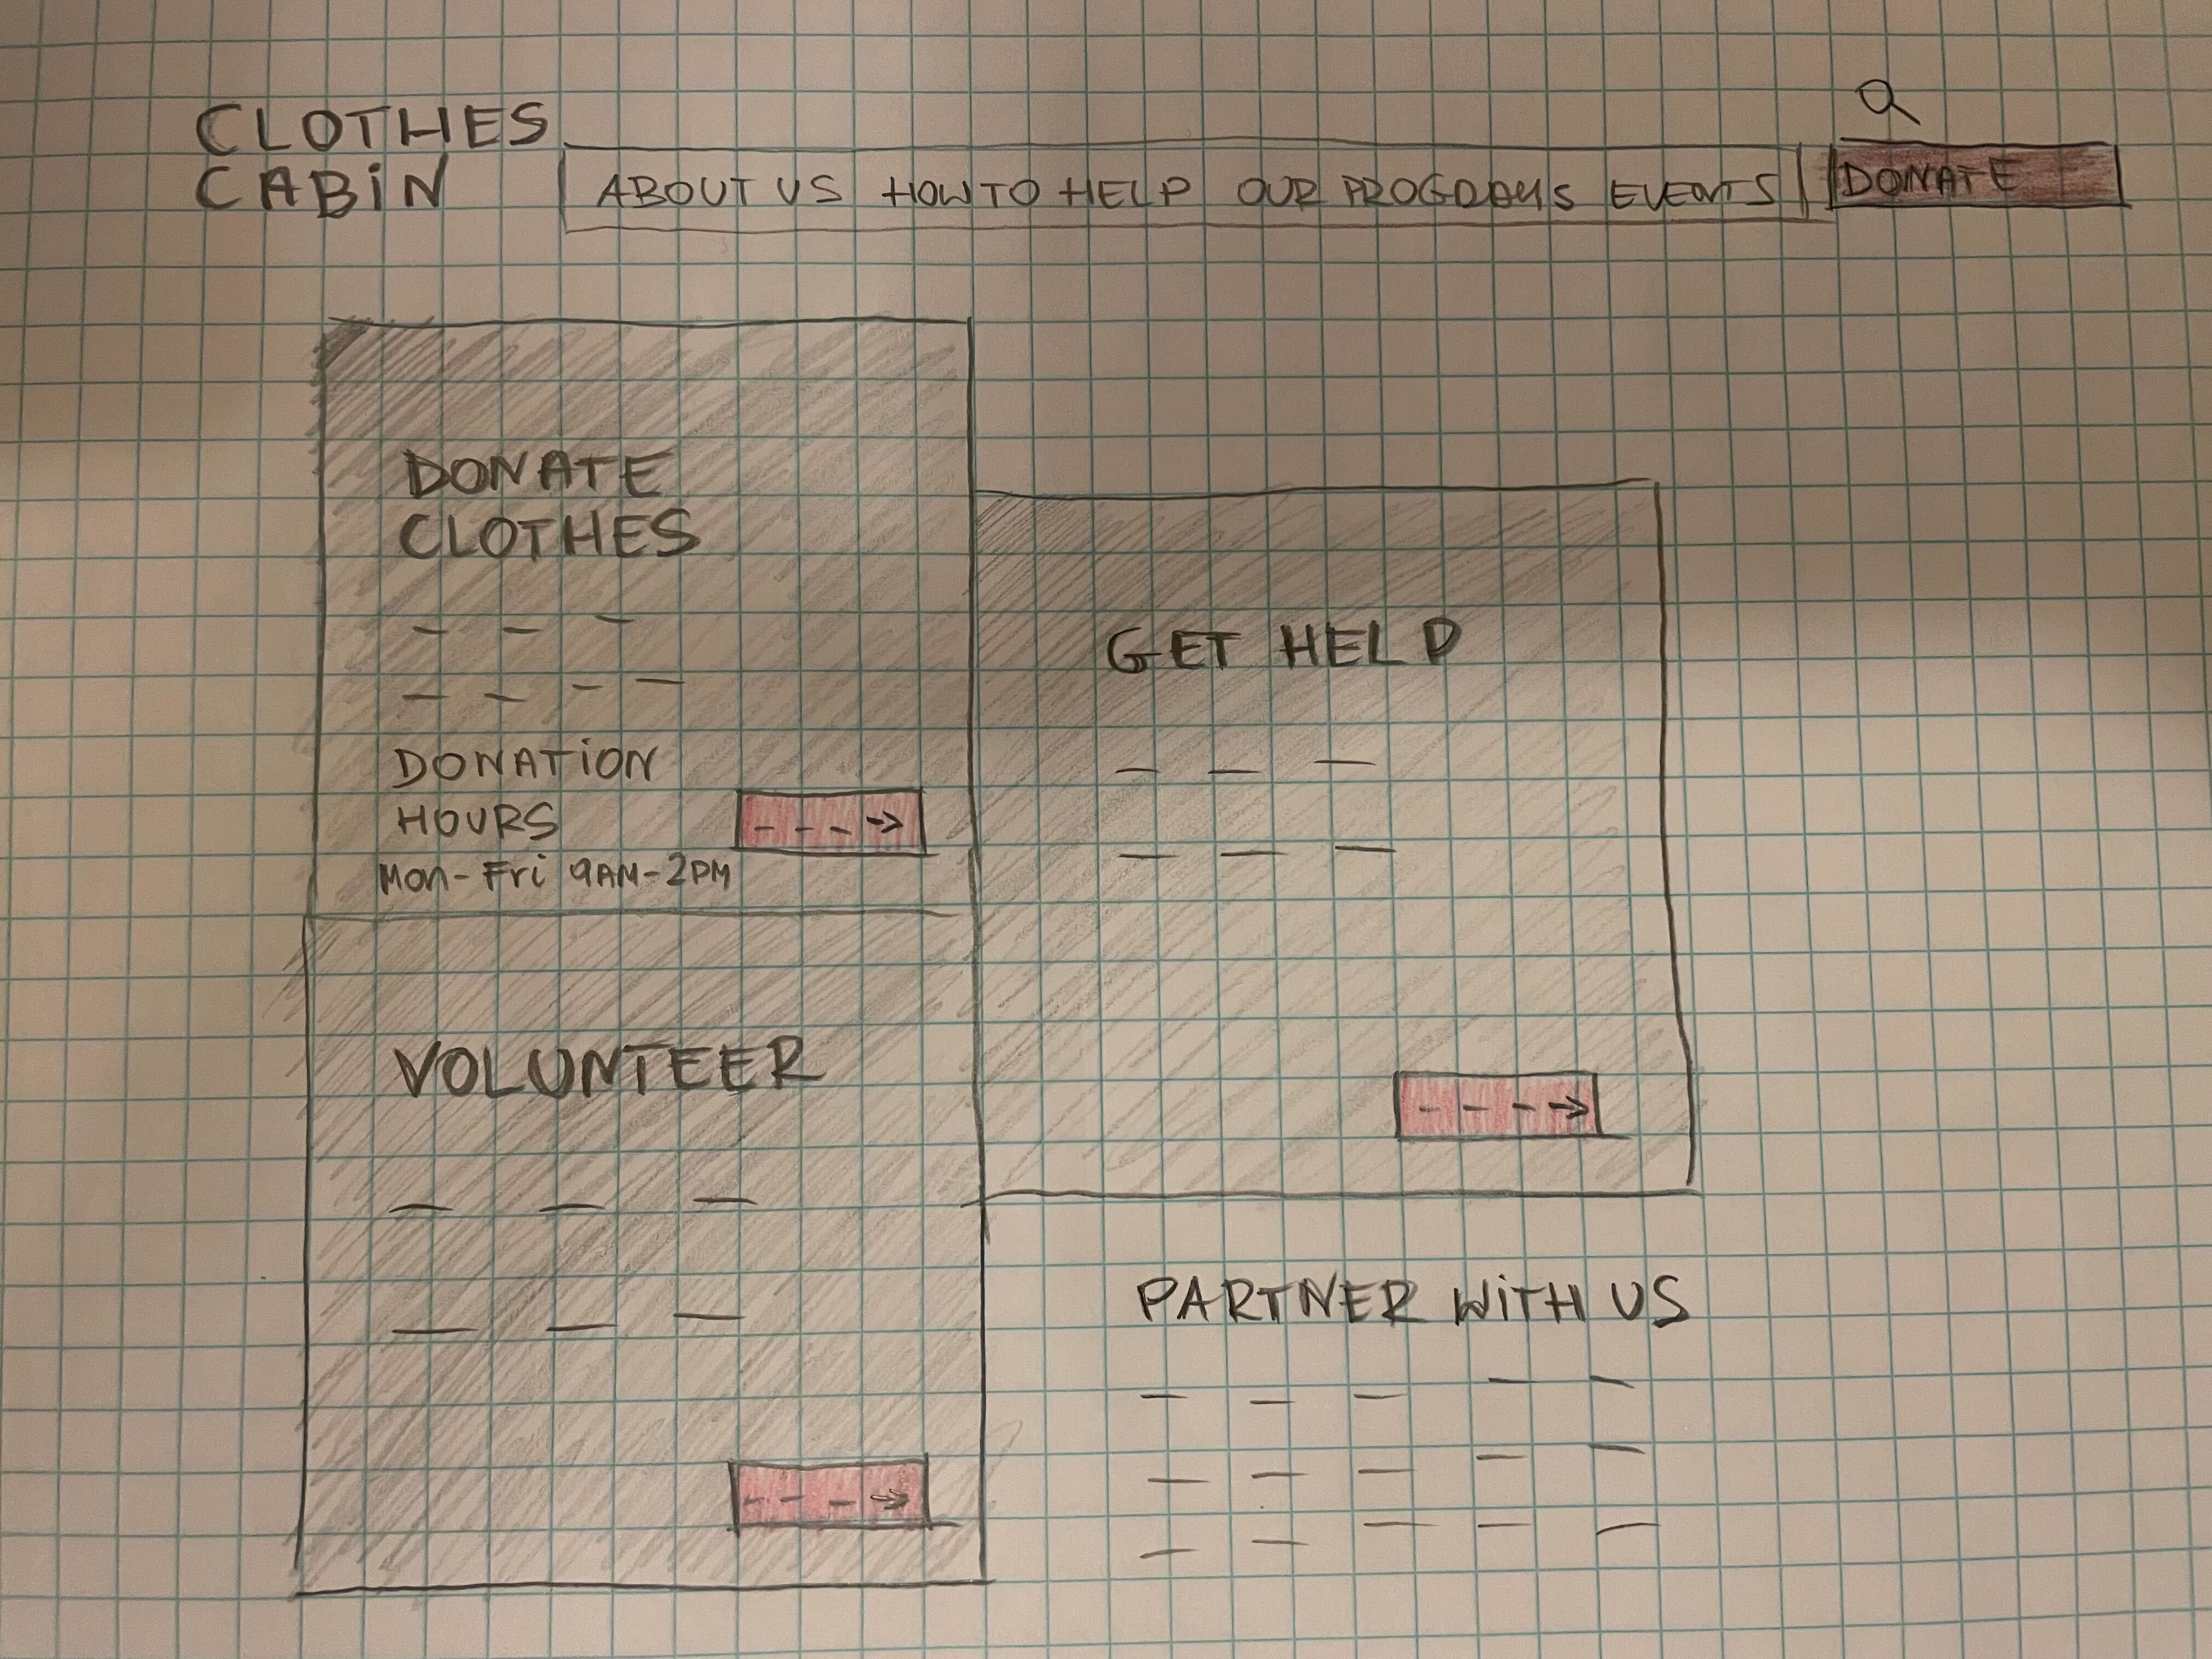 CLOTHES
CABiN
ABOUT US HOW TO HELP OUR PROGRAMS EVENTS
DONATE
DONATE
CLOTHES
DONATiON
HOURS
Mon-Fri 9AM-2PM
GET HELP
VOLUNTEER
PARTNER WiTH US